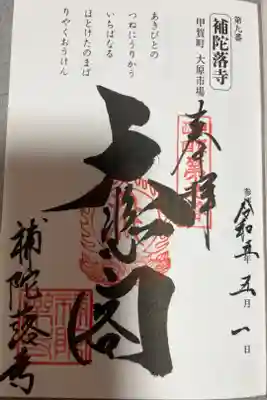 第九番
補陀落寺
甲賀町 大原市場
あきびとの
つねにうりかう
いちばなる
ほとけたのまば
りやくおうけん
奉拝
参拝 令和五年 五月 一日
大悲閣
補陀落寺